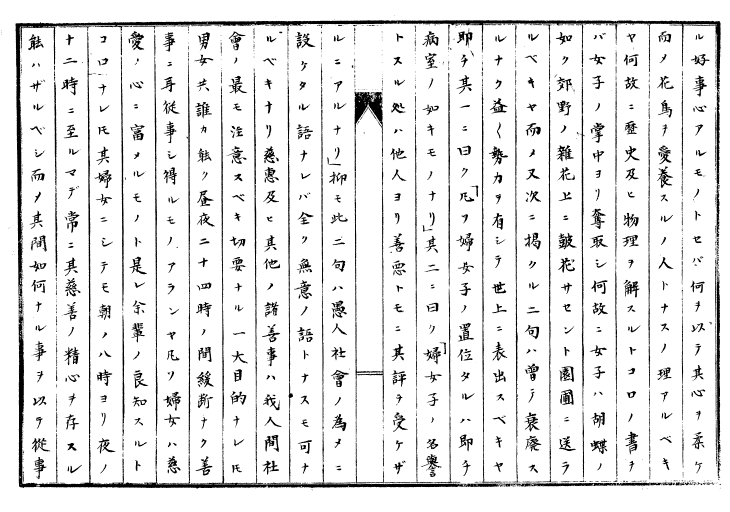 ル好事心アルモノトセバ何ヲ以テ其心ヲ柔ケ
而メ花鳥ヲ愛養スルノ人トナスノ理アルベキ
ヤ何故ニ歴史及ヒ物理ヲ解スルトコロノ書ヲ
バ女子ノ掌中ヨリ奪取シ何故ニ女子ハ胡蝶ノ
如ク郊野ノ雑花上ニ皷花サセント園圃ニ送ラ
ルベキヤ而メ又次ニ掲クル二句ハ曽テ衰廃ス
ルナク益〱勢力ヲ有シテ世上ニ表出スベキヤ
即チ其一ニ曰ク「凡ソ婦女子ノ置位タルハ即チ
病室ノ如キモノナリ」其二ニ曰ク「婦女子ノ名誉
トスル処ハ他人ヨリ善悪トモニ其評ヲ受ケザ
ルニアルナリ」抑モ此二句ハ愚人社會ノ為メニ
設ケタル語ナレバ全ク無意ノ語トナスモ可ナ
ルベキナリ慈恵及ヒ其他ノ諸善事ハ我人間社
會ノ最モ注意スベキ切要ナル一大目的ナレ𪜈
男女共誰カ能ク昼夜二十四時ノ間緩断ナク善
事ニ再従事シ得ルモノアランヤ凡ソ婦女ハ慈
愛ノ心ニ富メルモノト是レ余輩ノ良知スルト
コロナレ𪜈其婦女ニシテモ朝ノ八時ヨリ夜ノ
十二時ニ至ルマデ常ニ其慈善ノ精心ヲ存スル
能ハザルベシ而メ其間如何ナル事ヲ以テ従事